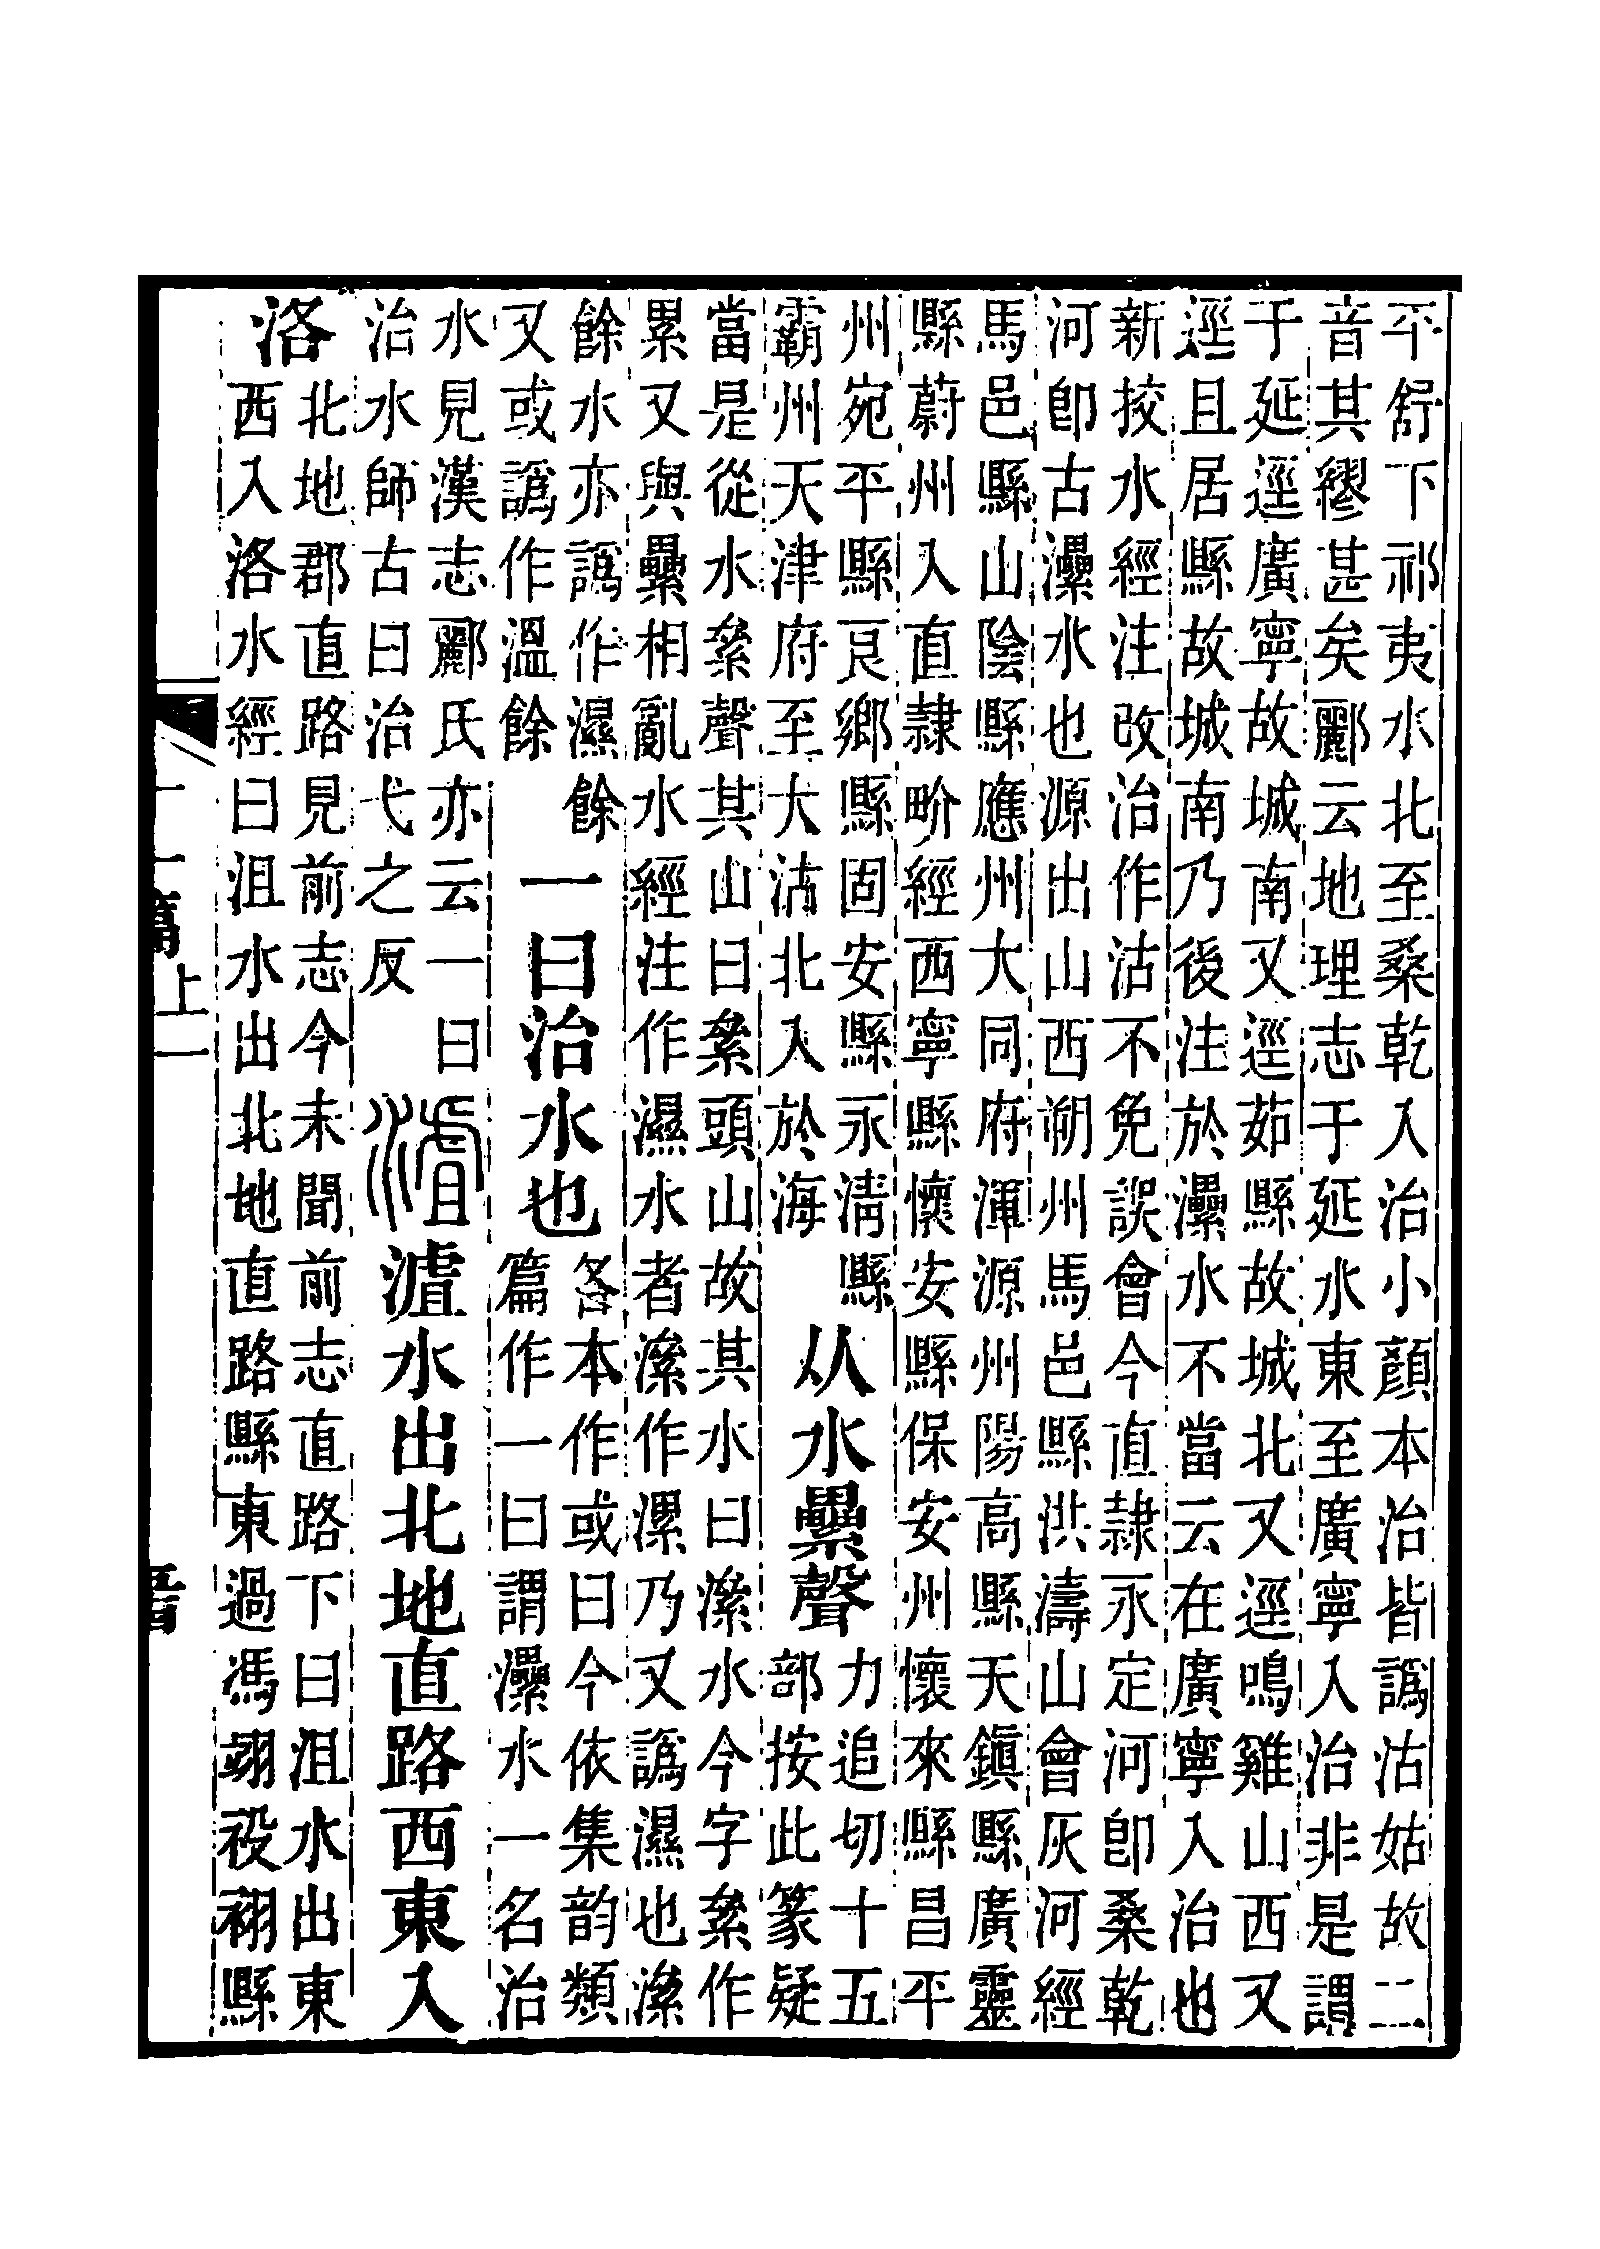 平舒下祁夷水北至桑乾入治小顏本治皆譌沽姑故二
音其繆甚矣酈云地理志于延水東至廣寧入治非是謂
于延逕廣寧故城南又逕茹縣故城北又逕鳴雞山西又
逕且居縣故城南乃後注於灅水不當云在廣寧入治也
新挍水經注改治作沽不免誤會今直隷永定河卽桑乾
河卽古灅水也源出山西朔州馬邑縣洪濤山會灰河經
馬邑縣山陰縣應州大同府渾源州陽高縣天鎮縣廣靈
縣蔚州入直隷畍經西寧縣懷安縣保安州懷來縣昌平
州宛平縣良鄉縣固安縣永淸縣
霸州天津府至大沽北入於海
从水纍聲
力追切十五
部按此篆疑
當是從水絫聲其山曰絫頭山故其水曰㶟水今字絫作
累又與纍相亂水經注作濕水者㶟作漯乃又譌濕也㶟
餘水亦譌作濕餘
又或譌作溫餘
一曰治水也
各本作或曰今依集韵類
篇作一曰謂灅水一名治
水見漢志酈氏亦云一曰
治水師古曰治弋之反
𣻐
𣻐水出北地直路西東入
洛
北地郡直路見前志今未聞前志直路下曰沮水出東
西入洛水經曰沮水出北地直路縣東過馮翊祋祤縣
十一篇上一